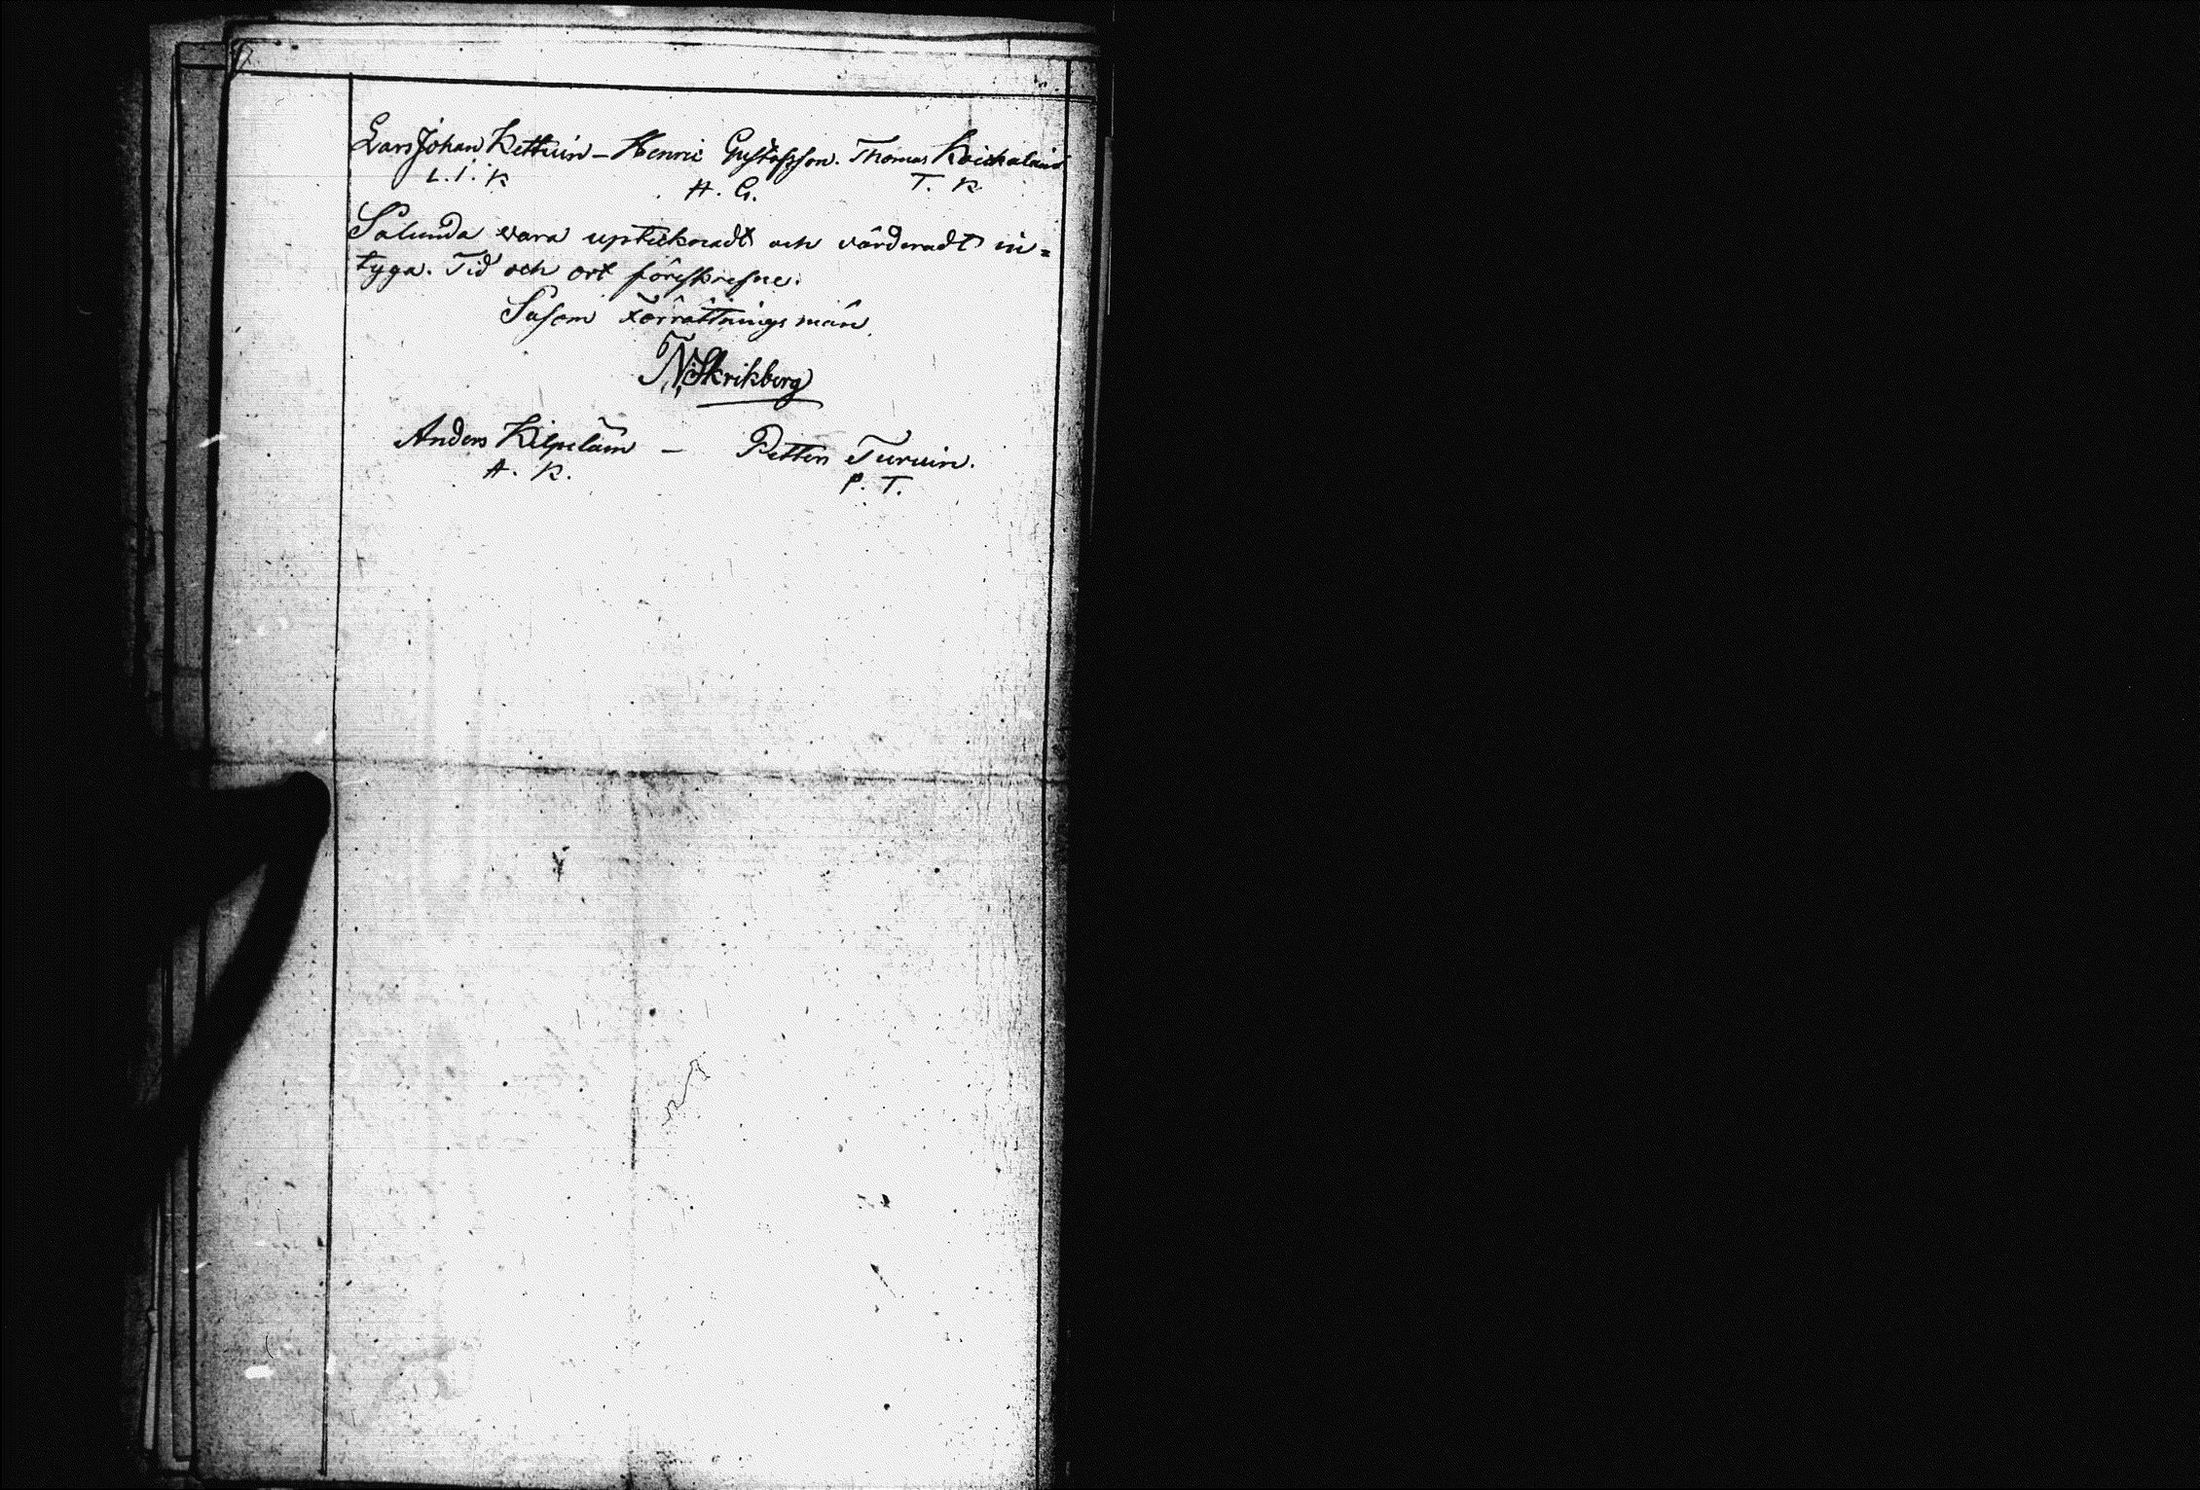 Lars Johan Kettuin – Henric Gustafsson. Thomas
L. J. K   H. G.   T. K
Salunda vara uptecknadt och värderadt in=
tyga. Tid och ort föreskrefne.
Såsom Förrättnings män
N. Skrikberg
Anders Kilpeläin – Petter Turuin.
A. K.   P. T.